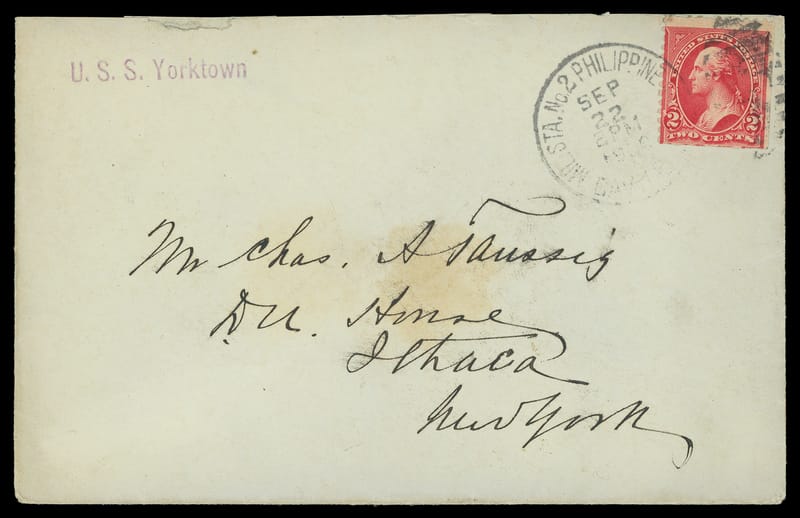 U. S. S. Yorktown
MIL. STA. No. 2 PHILIPPINE
SEP
22
PM
UNITED STATES POSTAGE
2 2
TWO CENTS
Mr Chas. A Taussig
D.U. House
Ithaca
New York